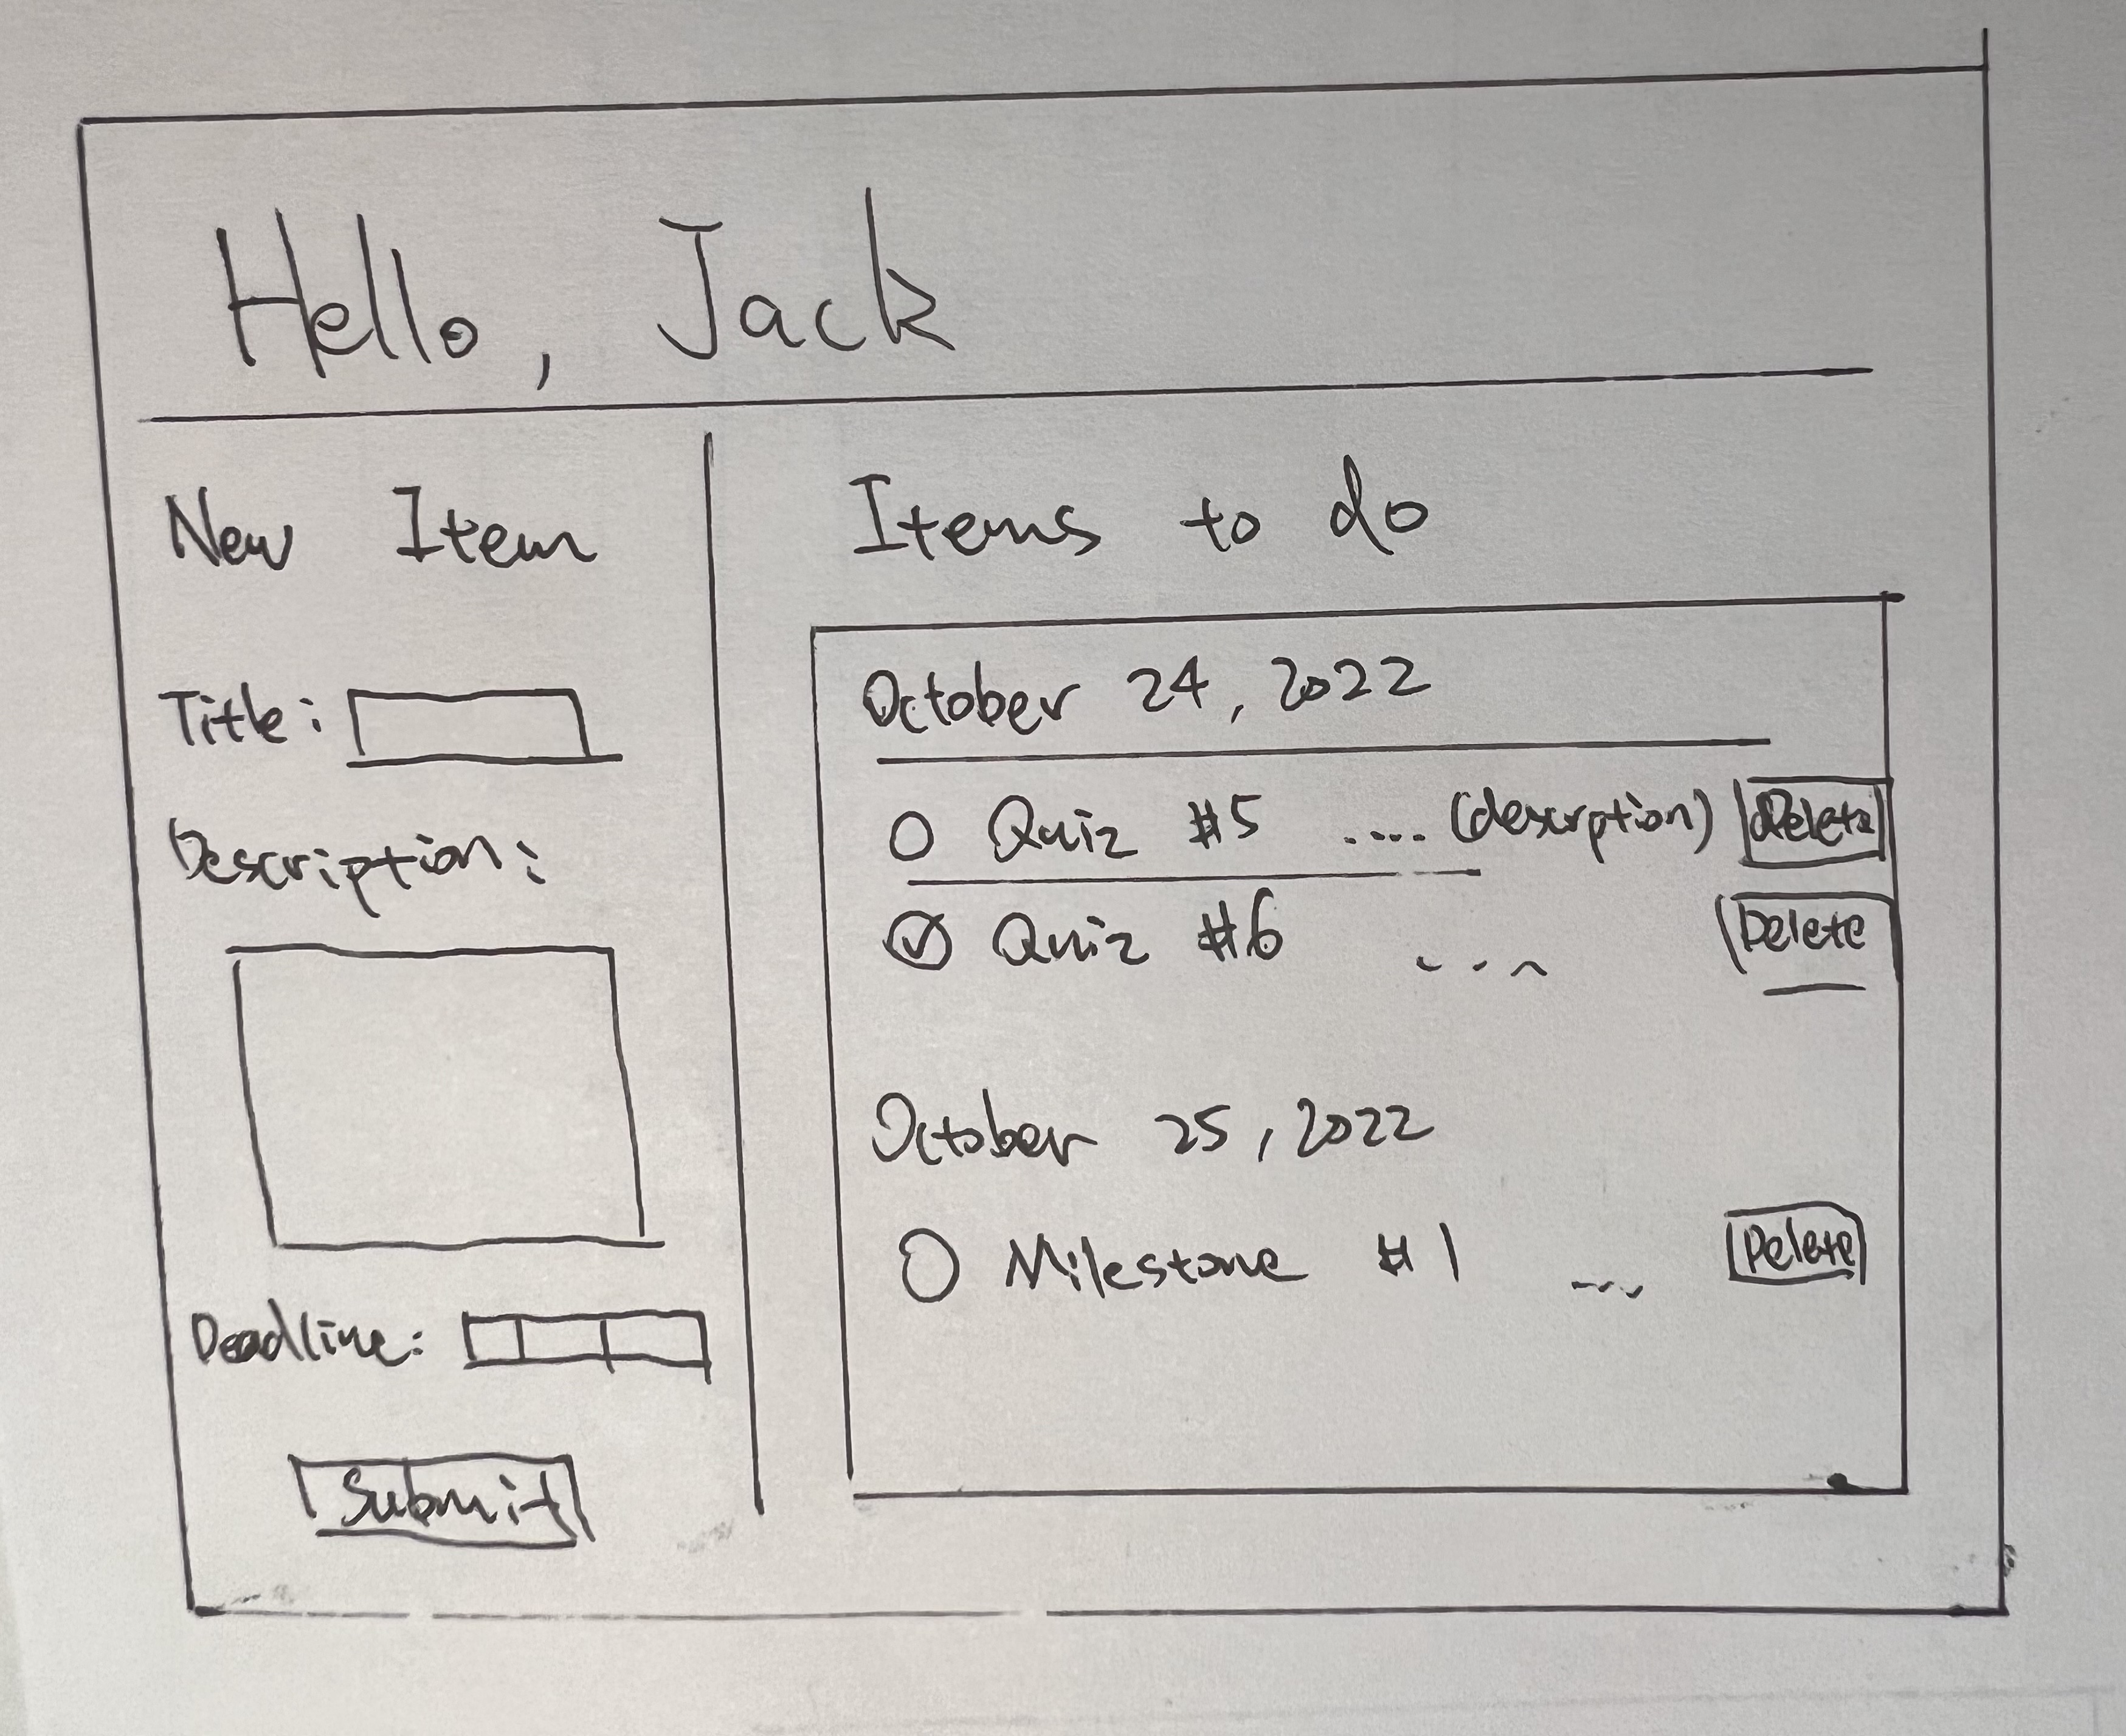 Hello, Jack
New Item
Title:
Description:
Deadline:
Submit
Items to do
October 24, 2022
Quiz #5 .... (descrption) Delete
Quiz #6 ... Delete
October 25, 2022
Milestone #1 ... Delete